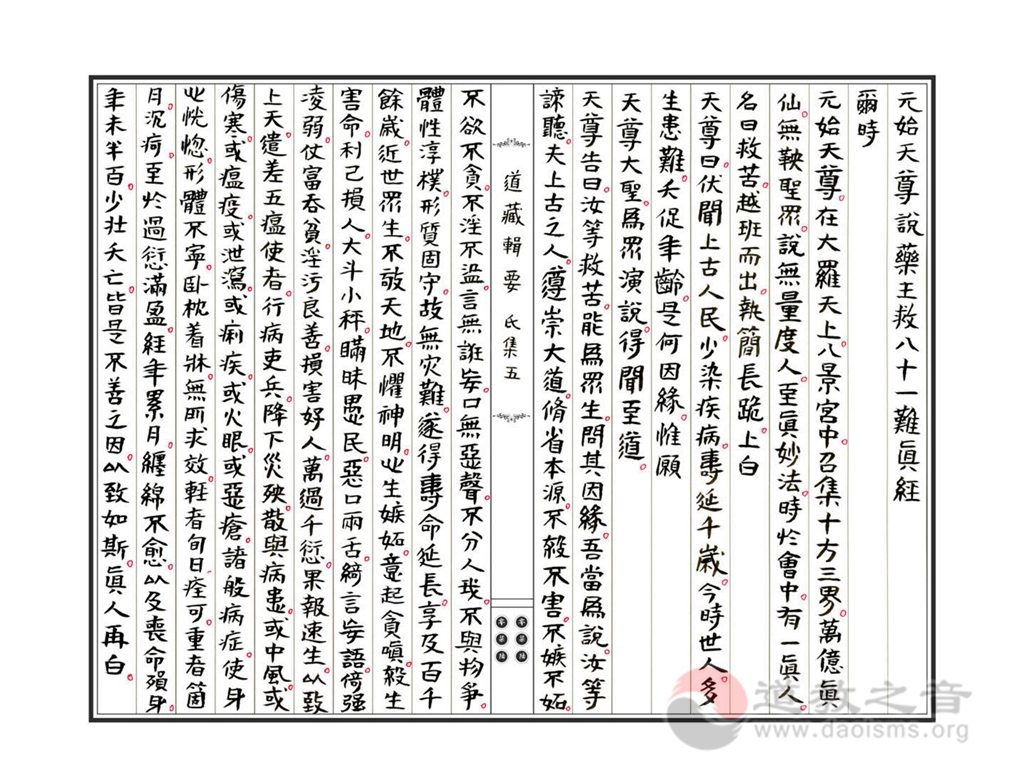 元始天尊說藥王救八十一難眞経
爾時
元始天尊。在大羅天上。八景宮中。召集十方三界。萬億眞
仙。無鞅聖眾。說無量度人。至眞妙法。時扵會中。有一眞人。
名曰救苦。越班而出。執簡長跪。上白
天尊曰。伏聞上古人民。少染疾病。夀延千歲。今時世人。多
生患難。夭促年齡。是何因緣。惟願
天尊大聖。爲眾演說。得聞至道。
天尊告曰。汝等救苦。能爲眾生。問其因緣。吾當爲說。汝等
諦聽。夫上古之人。遵崇大道。脩省本源。不殺不害。不嫉不妬
不欲不貪。不淫不盜。言無誑妄。口無惡聲。不分人我。不與物爭。
體性淳樸。形質固守。故無灾難。遂得夀命延長。享及百千
餘歲。近世眾生。不敬天地。不懼神明。心生嫉妬。意起貪嗔。殺生
害命。利己損人。大斗小秤。瞞昧愚民。惡口兩舌。綺言妄語。倚强
凌弱。仗富吞貧。淫污良善。損害好人。萬過千愆。果報速生。以致
上天遣差五瘟使者。行病吏兵。降下災殃。散與病患。或中風。或
傷寒。或瘟疫。或泄瀉。或痢疾。或火眼。或惡瘡。諸般病症。使身
心恍惚。形體不寧。臥枕着牀。無所求效。輕者旬日痊可。重者箇
月沉疴。至扵過愆滿盈。経年累月。纏綿不愈。以及喪命殞身。
年未半百。少壯夭亡。皆是不善之因。以致如斯。眞人再白。
道藏輯要 氐集五
道教之音
www.daoisms.org